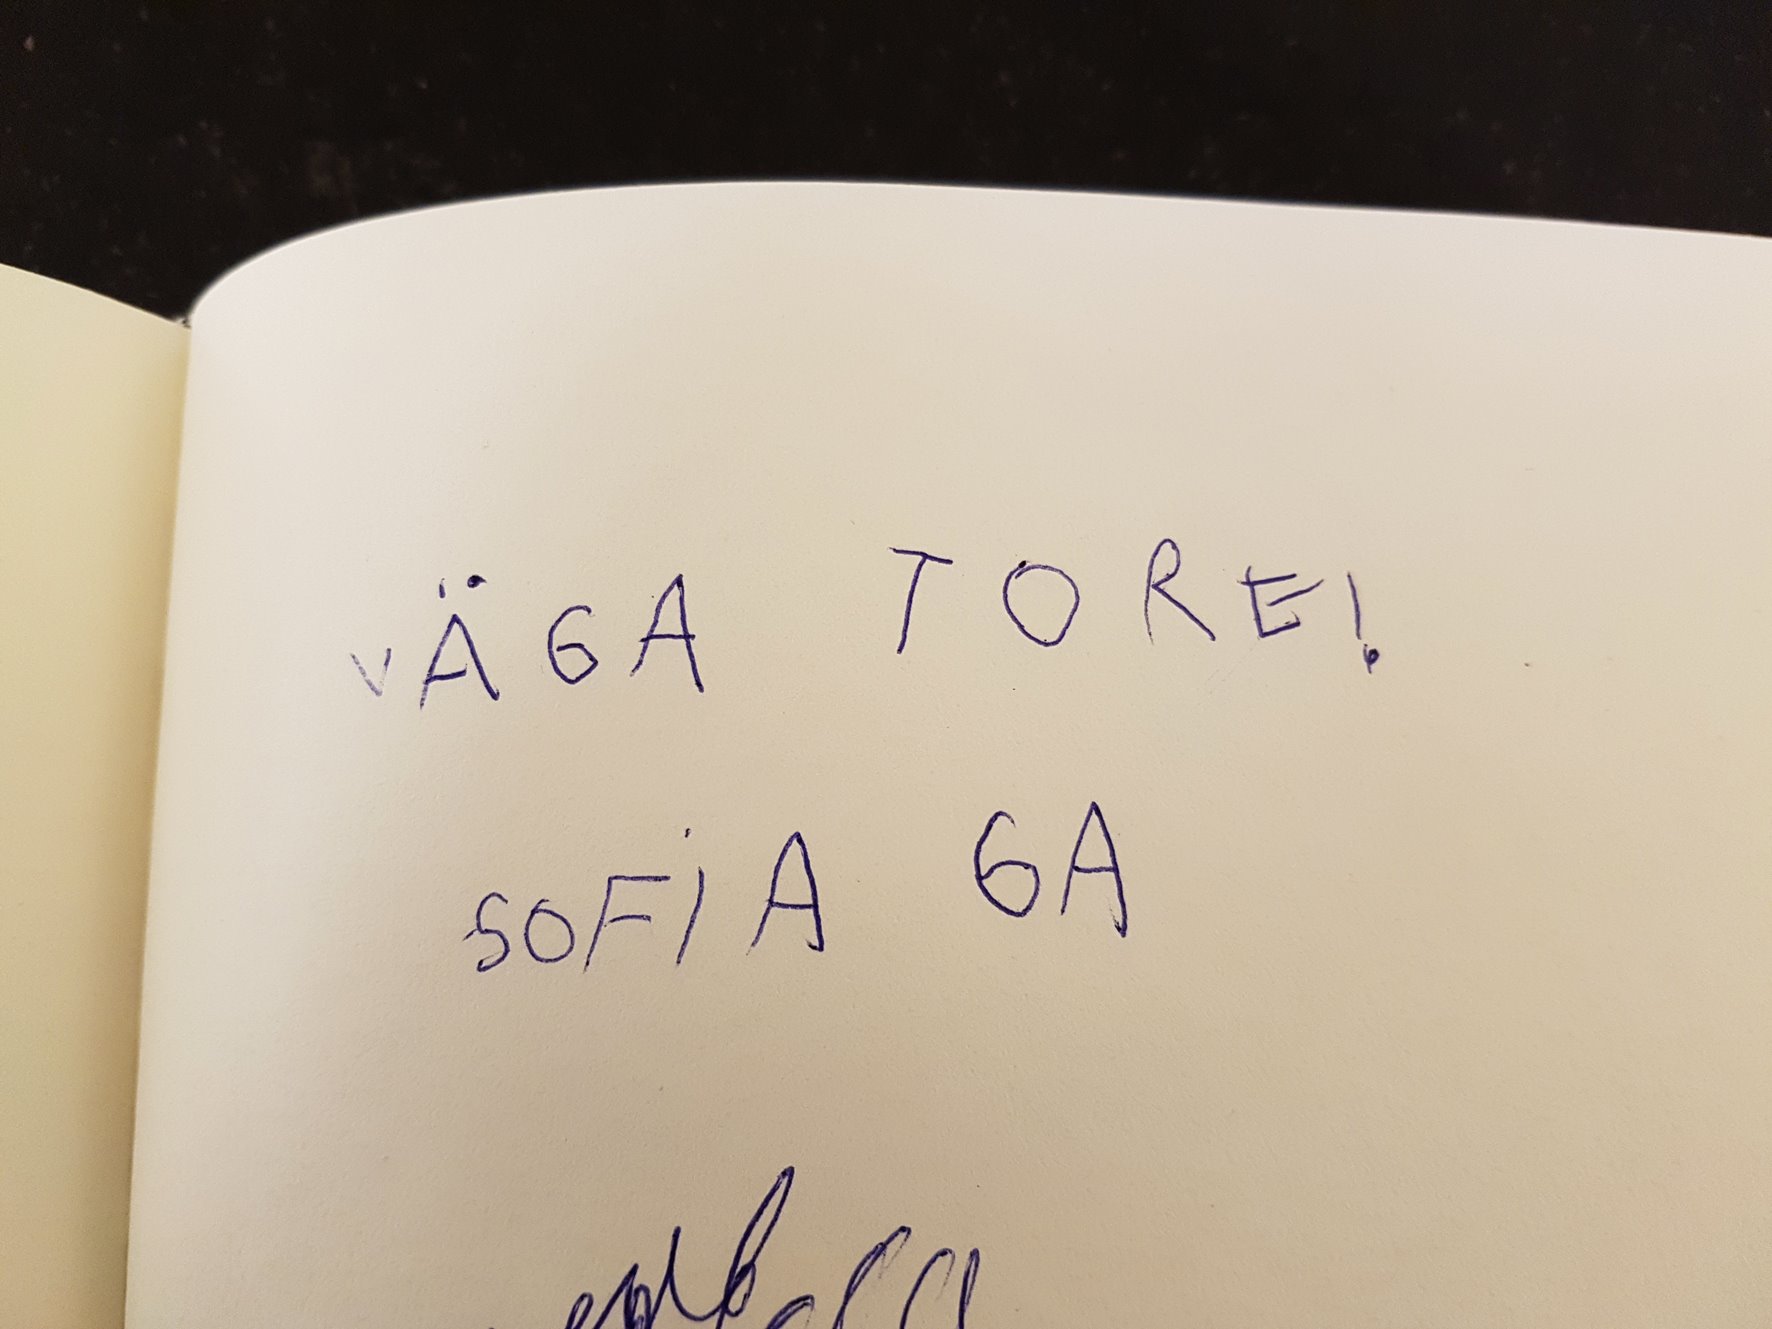 VÄGA TORE!
SOFIA 6A